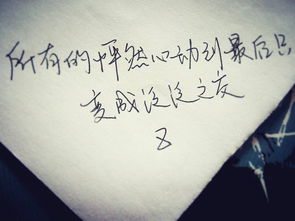 所有的怦然心动到最后只
变成泛泛之交
8